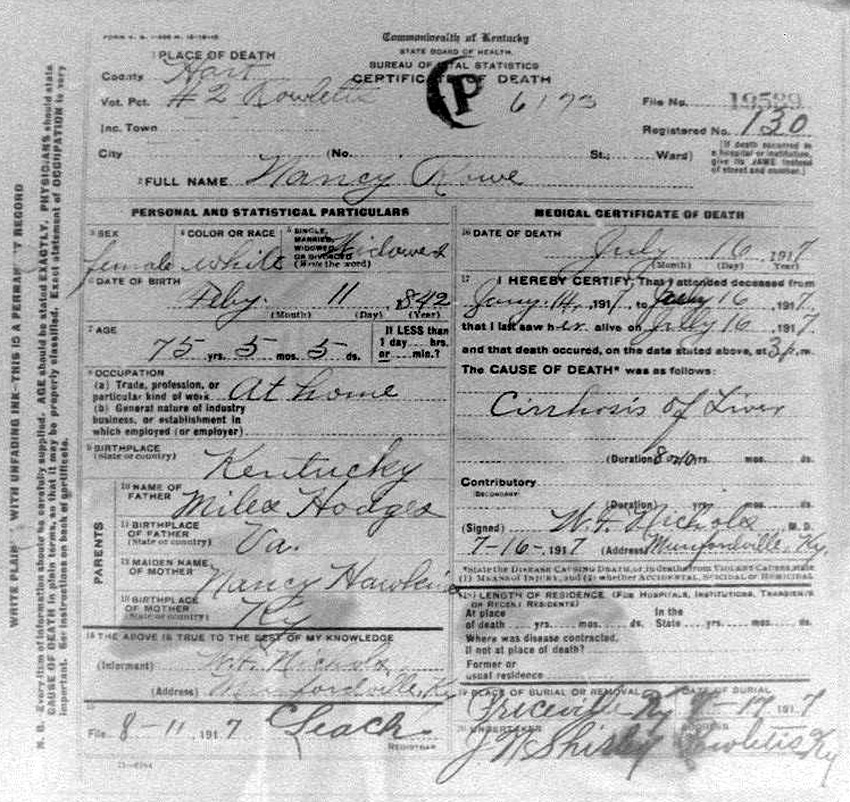 FORM V. S.
Commonwealth of Kentucky
STATE BOARD OF HEALTH.
BUREAU OF VITAL STATISTICS
CERTIFICATE OF DEATH
P
6173
1 PLACE OF DEATH
County Hart
Vot. Pct. #2 Rowletts
Inc. Town
City (No. St.; Ward)
File No. 19589
Registered No. 130
[If death occurred in
a hospital or institution,
give its NAME instead
of street and number.]
2 FULL NAME Nancy Rowe
PERSONAL AND STATISTICAL PARTICULARS
3 SEX
female
4 COLOR OR RACE
white
5 SINGLE,
MARRIED,
WIDOWED
OR DIVORCED
(Write the word)
Widowed
6 DATE OF BIRTH
Feby. 11 842
(Month) (Day) (Year)
7 AGE
75 yrs. 5 mos. 5 ds.
If LESS than
1 day.... hrs.
or.... min.?
8 OCCUPATION
(a) Trade, profession, or
particular kind of work At home
(b) General nature of industry
business, or establishment in
which employed (or employer)
9 BIRTHPLACE
(State or country) Kentucky
PARENTS
10 NAME OF
FATHER Miles Hodges
11 BIRTHPLACE
OF FATHER
(State or country) Va.
12 MAIDEN NAME
OF MOTHER Nancy Hawkins
13 BIRTHPLACE
OF MOTHER
(State or country) Ky
14 THE ABOVE IS TRUE TO THE BEST OF MY KNOWLEDGE
(Informant) W.F. Nichols
(Address) Munfordville, Ky
15
File 8-11, 1917 Leach
REGISTRAR
MEDICAL CERTIFICATE OF DEATH
16 DATE OF DEATH
July 16 1917
(Month) (Day) (Year)
17 I HEREBY CERTIFY, That I attended deceased from
Jany. 14, 1917, to July 16, 1917,
that I last saw her alive on July 16, 1917
and that death occured, on the date stated above, at 3 p.m
The CAUSE OF DEATH* was as follows:
Cirrhosis of Liver
(Duration) yrs. mos. ds.
Contributory
(SECONDARY)
(Duration) yrs. mos. ds.
(Signed) W.F. Nichols M. D.
7-16-, 1917 (Address) Munfordville, Ky.
*State the DISEASE CAUSING DEATH, or in deaths from VIOLENT CAUSES, state
(1) MEANS OF INJURY, and (2) whether ACCIDENTAL, SUICIDAL or HOMICIDAL
18 LENGTH OF RESIDENCE (FOR HOSPITALS, INSTITUTIONS, TRANSIENTS
OR RECENT RESIDENTS)
At place
of death .... yrs. .... mos. .... ds.
In the
State .... yrs. .... mos. .... ds.
Where was disease contracted,
If not at place of death?
Former or
usual residence
19 PLACE OF BURIAL OR REMOVAL
Priceville Ky
DATE OF BURIAL
17 1917
20 UNDERTAKER
J N Shirley
ADDRESS
Rowletts Ky
WRITE PLAINLY WITH UNFADING INK—THIS IS A PERMANENT RECORD
N. B. Every item of information should be carefully supplied. AGE should be stated EXACTLY. PHYSICIANS should state
CAUSE OF DEATH in plain terms, so that it may be properly classified. Exact statement of OCCUPATION is very
important. See instructions on back of certificate.